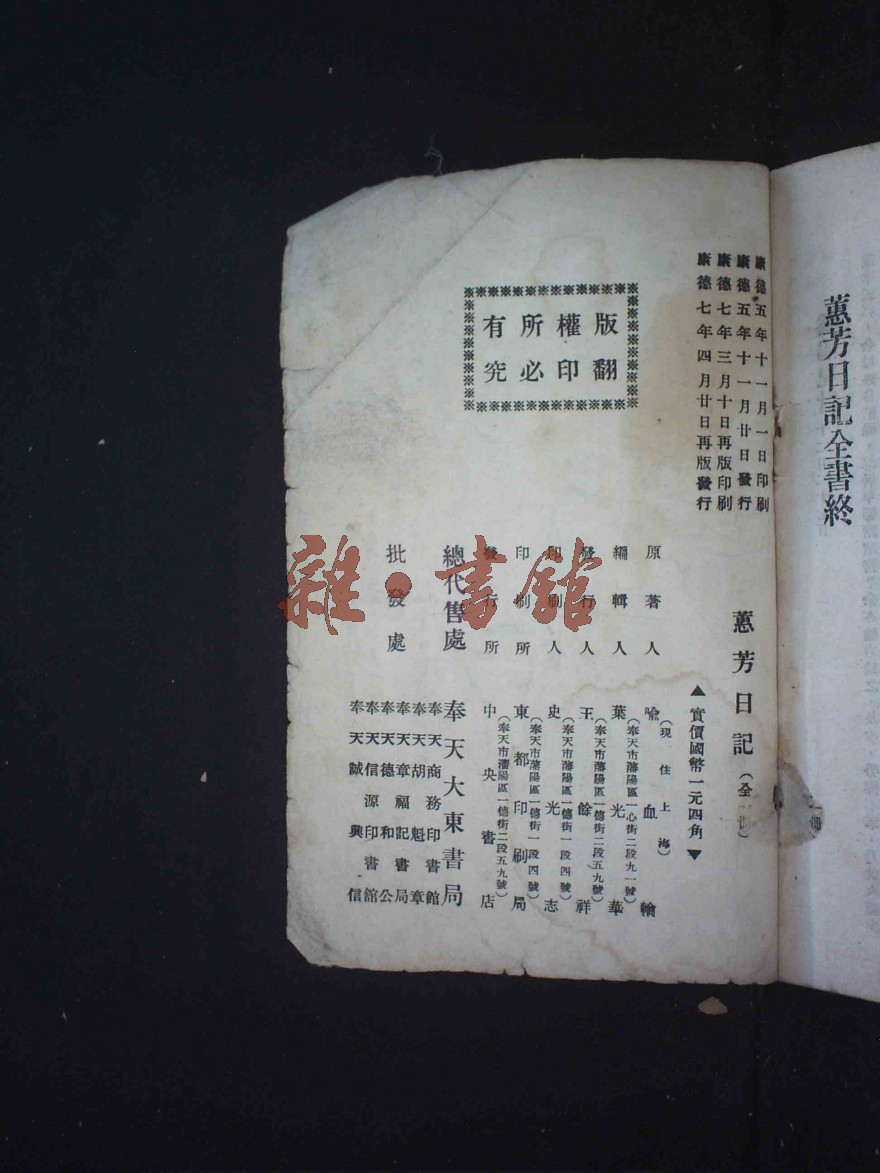 蕙芳日記全書終
康德五年十一月一日印刷
康德五年十一月廿日發行
康德七年三月十日再版印刷
康德七年四月廿日再版發行
版權所有
翻印必究
蕙芳日記（全一冊）
▲實價國幣一元四角▼
原著人 喻血輪
（現住上海）
編輯人 葉光華
（奉天市瀋陽區一心街二段九一號）
發行人 王餘祥
（奉天市瀋陽區一德街二段五九號）
印刷人 史光志
（奉天市瀋陽區一德街一段四號）
印刷所 東都印刷局
（奉天市瀋陽區一德街一段四號）
發行所 中央書店
（奉天市瀋陽區一德街二段五九號）
總代售處 奉天大東書局
批發處
奉天商務印書館
奉天胡魁章
奉天章福記書局
奉天德和公
奉天信源印書館
奉天誠興信
雜·書館